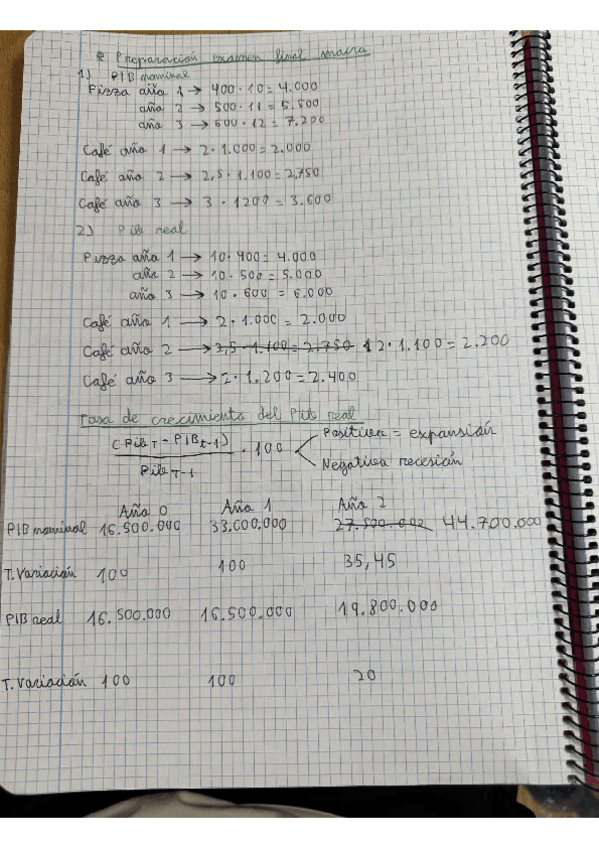 Preparación examen final macro
1) PIB nominal
Pizza año 1 → 400 · 10 = 4.000
año 2 → 500 · 11 = 5.500
año 3 → 600 · 12 = 7.200
Café año 1 → 2 · 1.000 = 2.000
Café año 2 → 2,5 · 1.100 = 2,750
Café año 3 → 3 · 1200 = 3.600
2) Pib real
Pizza año 1 → 10 · 400 = 4.000
año 2 → 10 · 500 = 5.000
año 3 → 10 · 600 = 6.000
Café año 1 → 2 · 1.000 = 2.000
Café año 2 → 2,5 · 1.100 = 2,750 2 · 1.100 = 2.200
Café año 3 → 2 · 1.200 = 2.400
Tasa de crecimiento del Pib real
(Pib T - PIB t-1) / Pib T-1 · 100 Positiva = expansión
Negativa recesión
Año 0 Año 1 Año 2
PIB nominal 16.500.000 33.000.000 27.500.000 44.700.000
T. Variación 100 100 35,45
PIB real 16.500.000 16.500.000 19.800.000
T. Variación 100 100 20